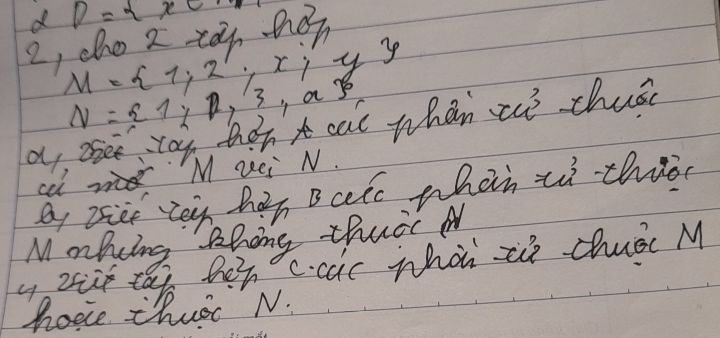 2, cho 2 tập hợp
M = { 1; 2; x; y }
N = { 1; 3, a }
a, viết tập hợp A các phần tử thuộc
cả M và N.
b, viết tập hợp B các phần tử thuộc
M nhưng không thuộc N
c, viết tập hợp C các phần tử thuộc M
hoặc thuộc N.